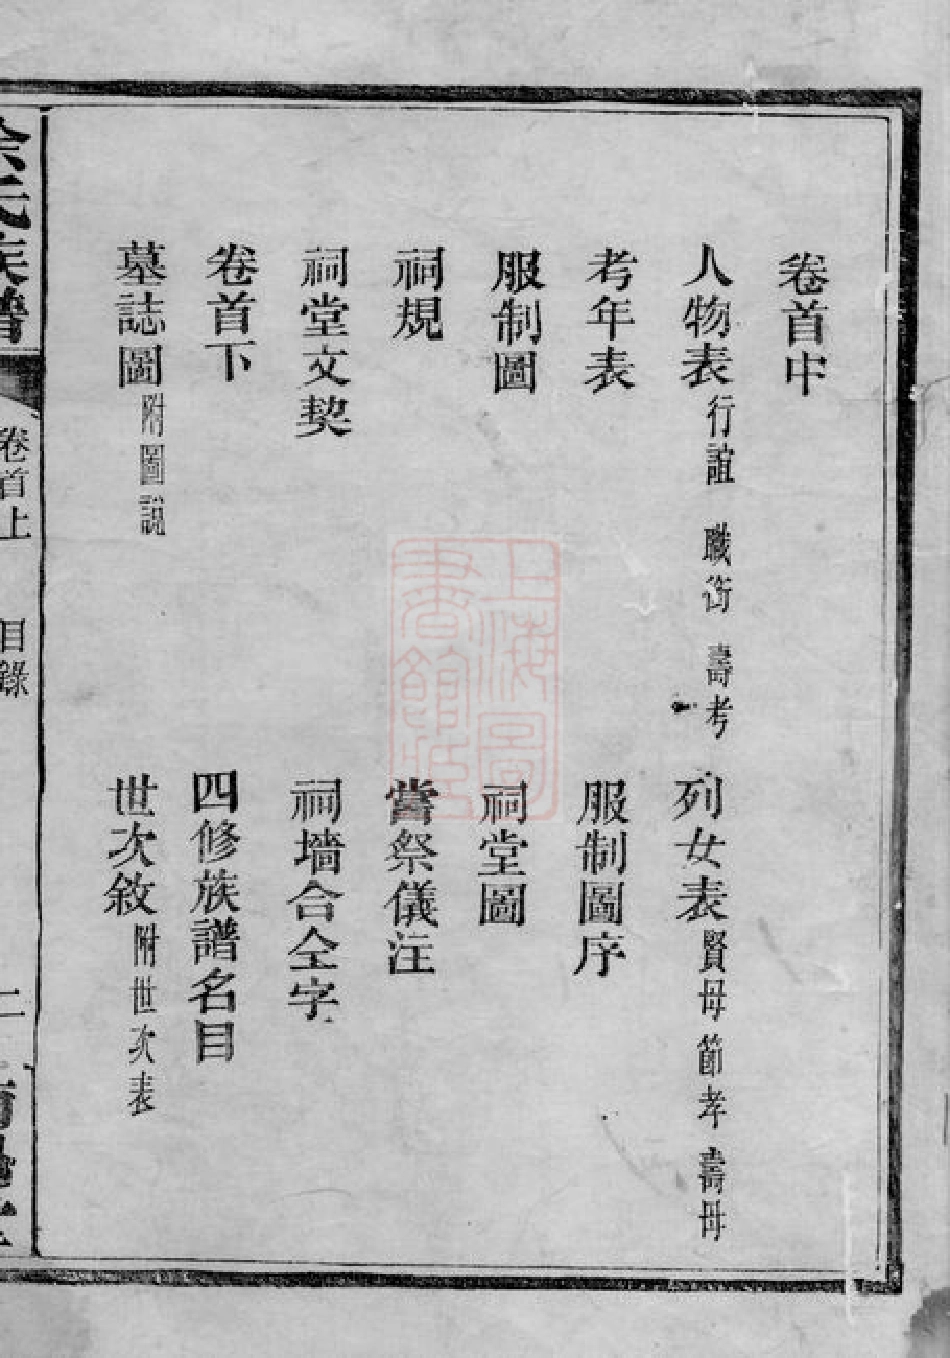 卷首中
人物表 行誼 職銜 壽考 列女表 賢母 節孝 壽母
考年表 服制圖序
服制圖 祠堂圖
祠規 嘗祭儀注
祠堂文契 祠墻合仝字
卷首下 四修族譜名目
墓誌圖 附圖說 世次敘 附世次表
余氏族譜 卷首上 目錄 二
上海圖書館藏